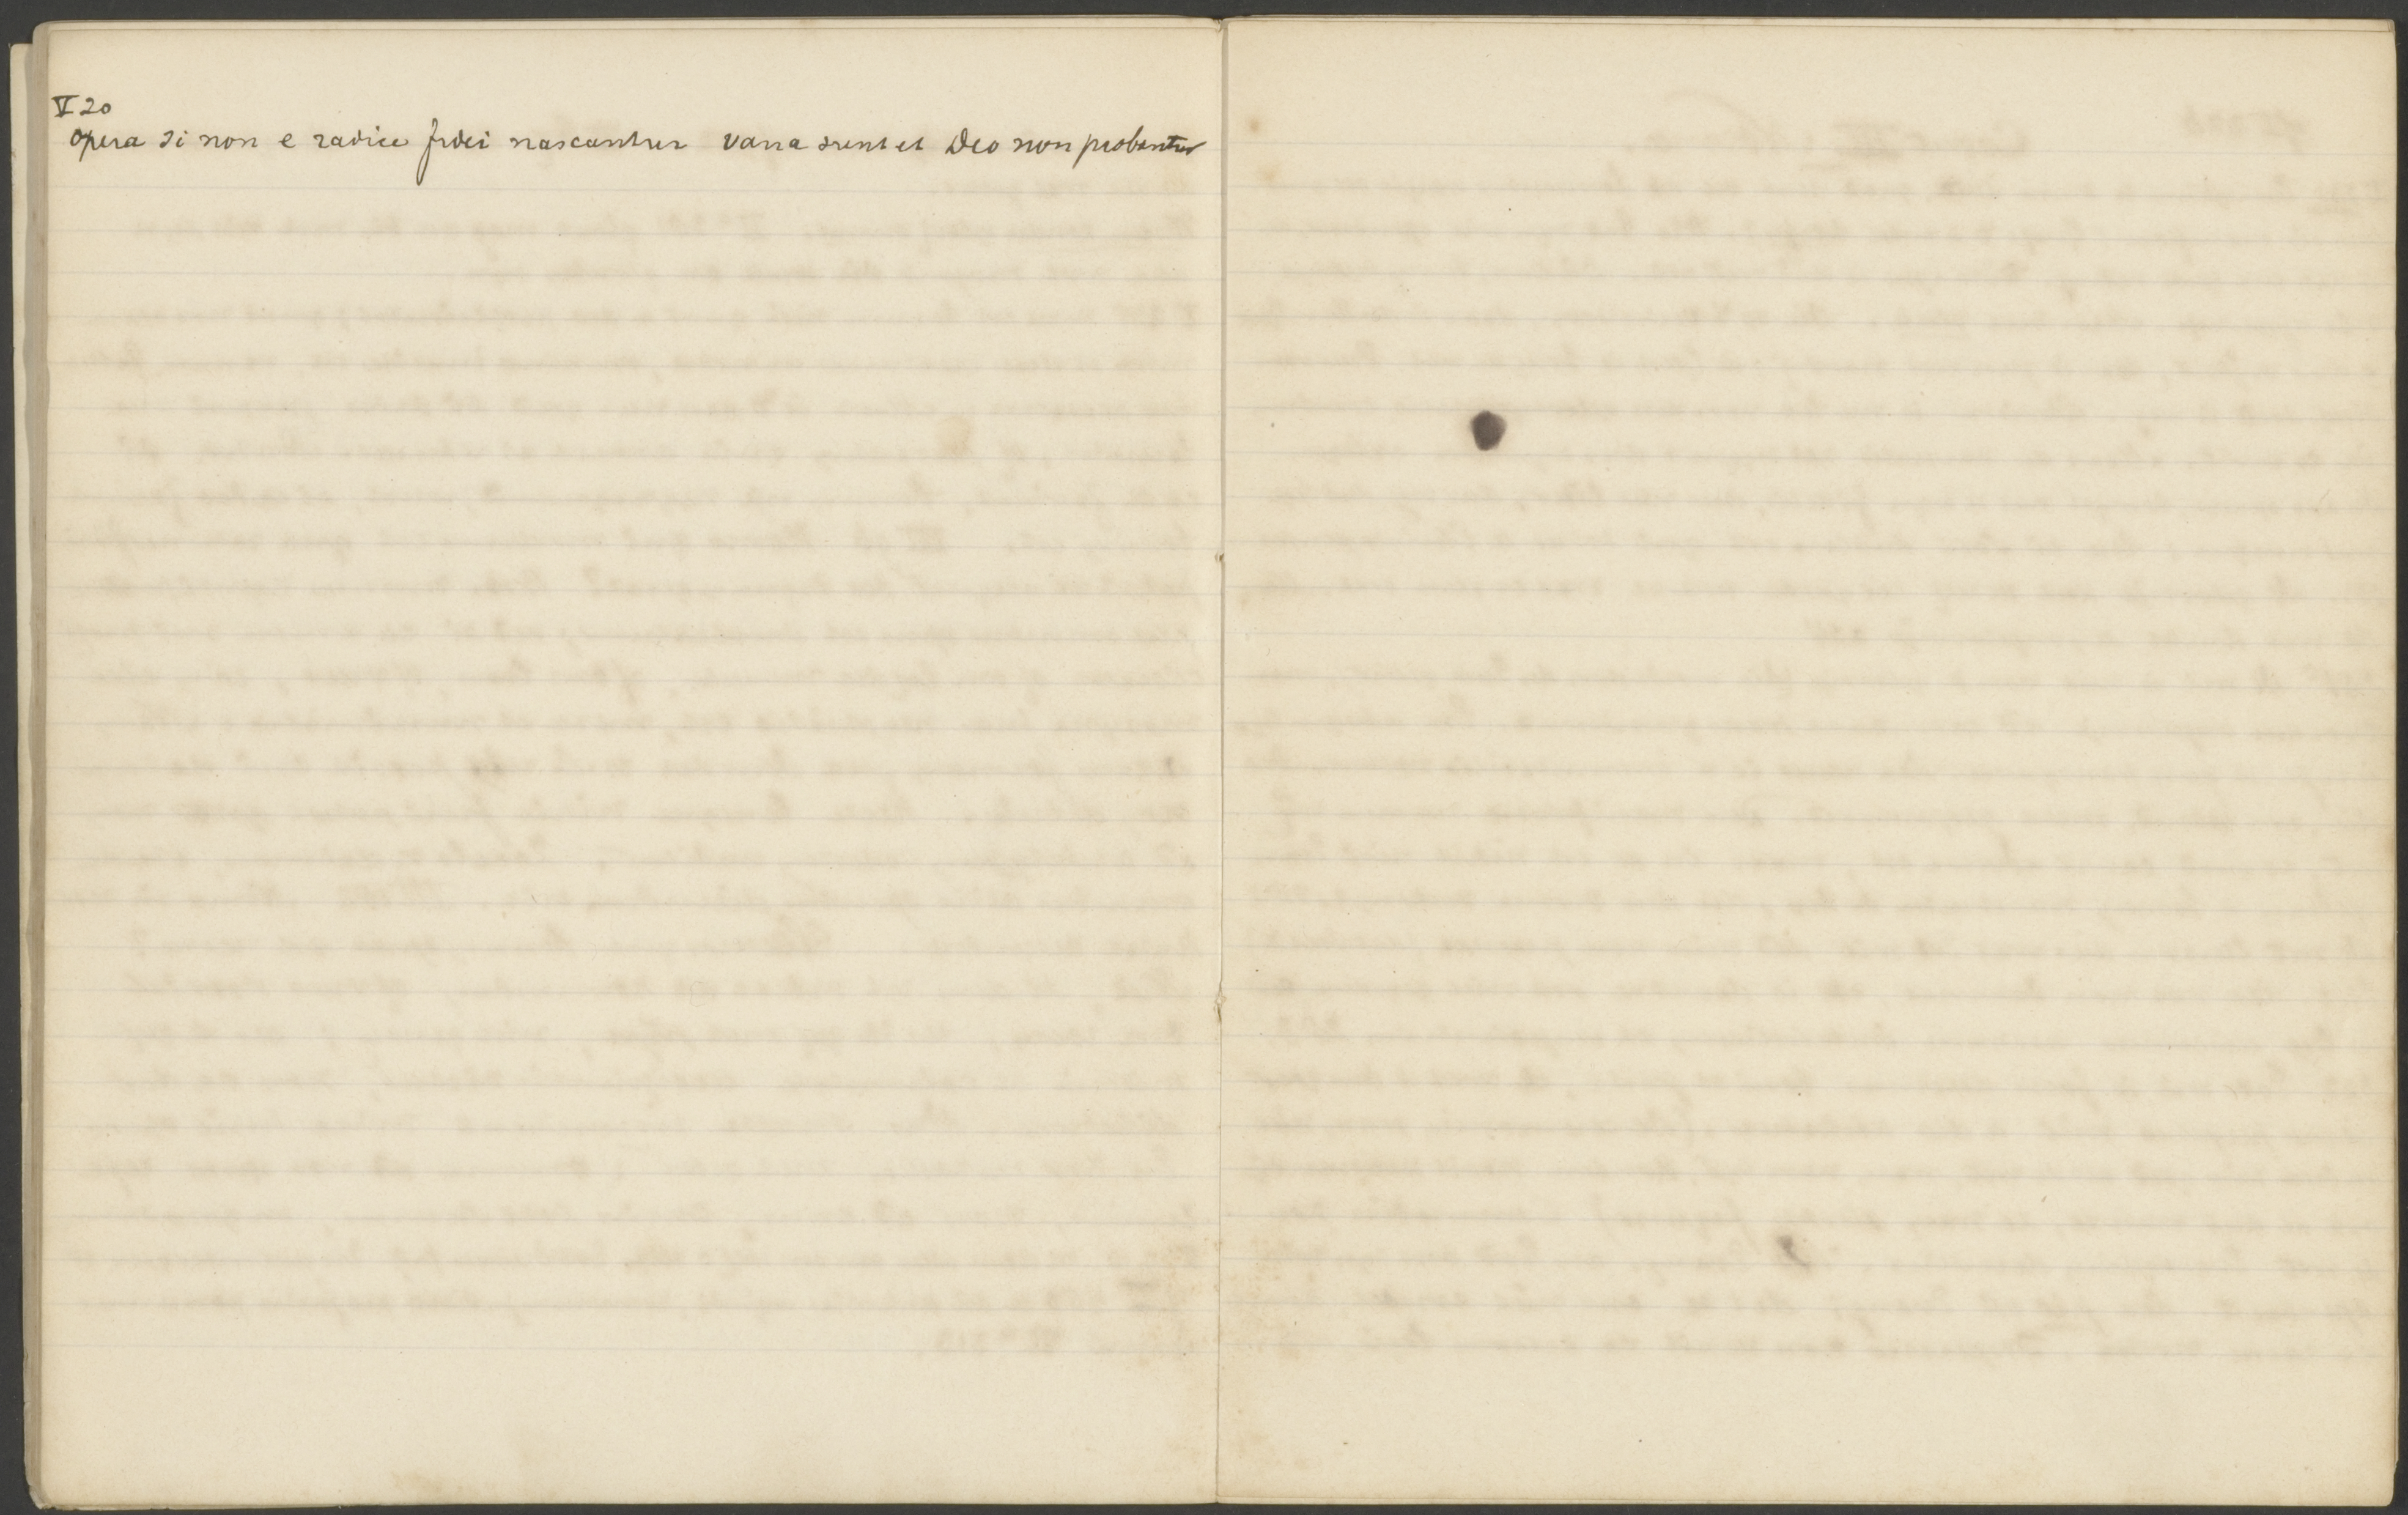 V 20
Opera si non e radice fidei nascantur vana sunt et Deo non probantur